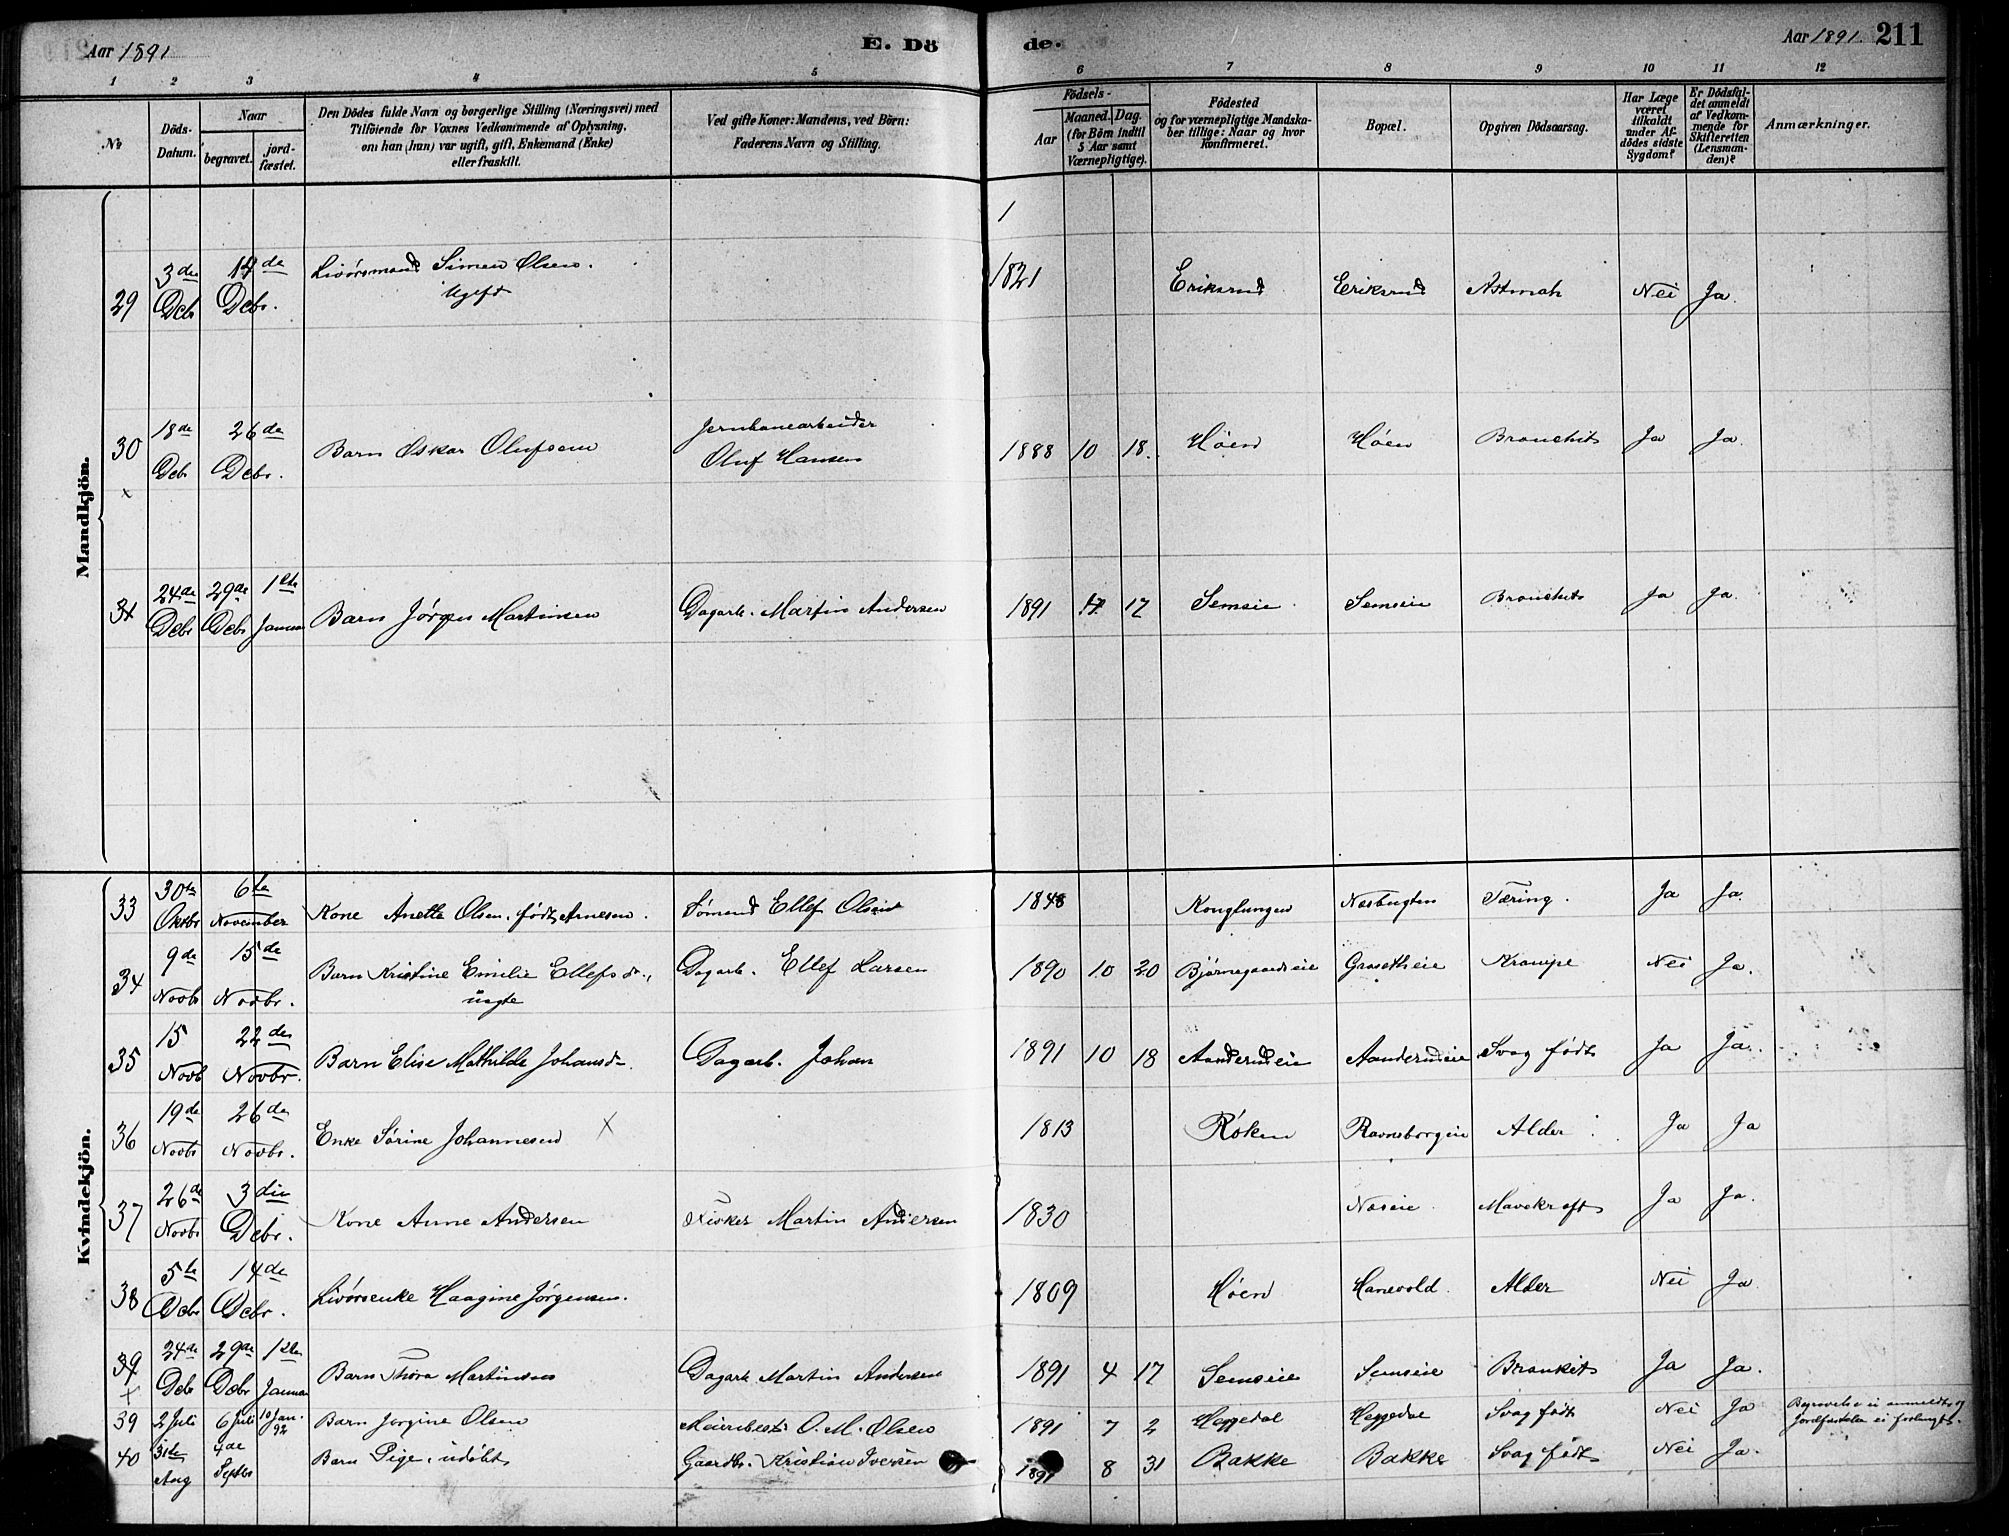 Aar 1891
E. Döde.
Aar 1891. 211
1 2 3 4 5 6 7 8 9 10 11 12
No
Döds-Datum.
Naar
begravet.
jordfæstet.
Den Dödes fulde Navn og borgerlige Stilling (Næringsvei) med
Tilföiende for Voxnes Vedkommende af Oplysning,
om han (hun) var ugift, gift, Enkemand (Enke)
eller fraskilt.
Ved gifte Koner: Mandens, ved Börn:
Faderens Navn og Stilling.
Födsels-
Aar
Maaned. Dag.
(for Börn indtil
5 Aar samt
Værnepligtige).
Födested
og for værnepligtige Mandska-
ber tillige: Naar og hvor
konfirmeret.
Bopæl.
Opgiven Dödsaarsag.
Har Læge
været
tilkaldt
under Af-
dödes sidste
Sygdom?
Er Dödsfal-
det anmeldt
af Vedkom-
mende for
Skifteretten
(Lensman-
den)?
Anmærkninger.
Mandkjön.
1
29 3die Debr 14de Debr. Livörsmand Simen Olsen. Ugift 1821 Eriksrud Eriksrud Astmah Nei Ja.
30 x 18de Debr 26de Debr. Barn Oskar Olufsen Jernbanearbeider Oluf Hansen 1888 10 18. Höen Höen Bronchit Ja Ja.
31 24de Debr 29de Debr 1ste Januar Barn Jörgen Martinsen Dagarb. Martin Andersen 1891 17 Semseie Semseie Bronchit Ja Ja.
Kvindekjön.
33 30te Oktbr 6te November Kone Anette Olsen, födt Arnesen. Sömand Ellef Olsen 1848 Konglungen Næsbugten Tæring. Ja Ja.
34 9de Novbr 15de Novbr. Barn Kristine Emilie Ellefsdr., uægte Dagarb. Ellef Larsen 1890 10 20 Bjørnegaardseie Grasetheie Krampe Nei Ja.
35 15 Novb 22de Novbr. Barn Elise Mathilde Johansdr. Dagarb. Johan 1891 10 18 Aanderudeie Aanderudeie Svag födt Ja Ja.
36 19de Novbr 26de Novbr. Enke Sörine Johannesen X 1813 Röken Ravnsborgeie Alder Ja Ja
37 26de Novbr 3die Debr. Kone Anne Andersen Fisker Martin Andersen 1830 Næseie. Mavekræft Ja Ja.
38 5te Debr 14de Debr. Livörsenke Haagine Jørgensen. 1809 Höen Hanevold. Alder Nei Ja
39 x 24de Debr 29de Debr 1ste Januar Barn Thora Martinsen Dagarb. Martin Andersen 1891 4 17 Semseie Semseie Bronkit Ja Ja.
39 2 Juli 6 Juli 10 Jan. 92 Barn Jørgine Olsen O. M. Olsen 1891 7 2 Heggedal Heggedal Svag födt Nei Ja Begravelse ei anmeldt og
Jordfæstelse ei forlangt.
40 31te Aug 4de Septbr Barn Pige, udöbt Gaardbr. Kristian Iversen 1891 8 31 Bakke Bakke Svag födt Nei Ja.